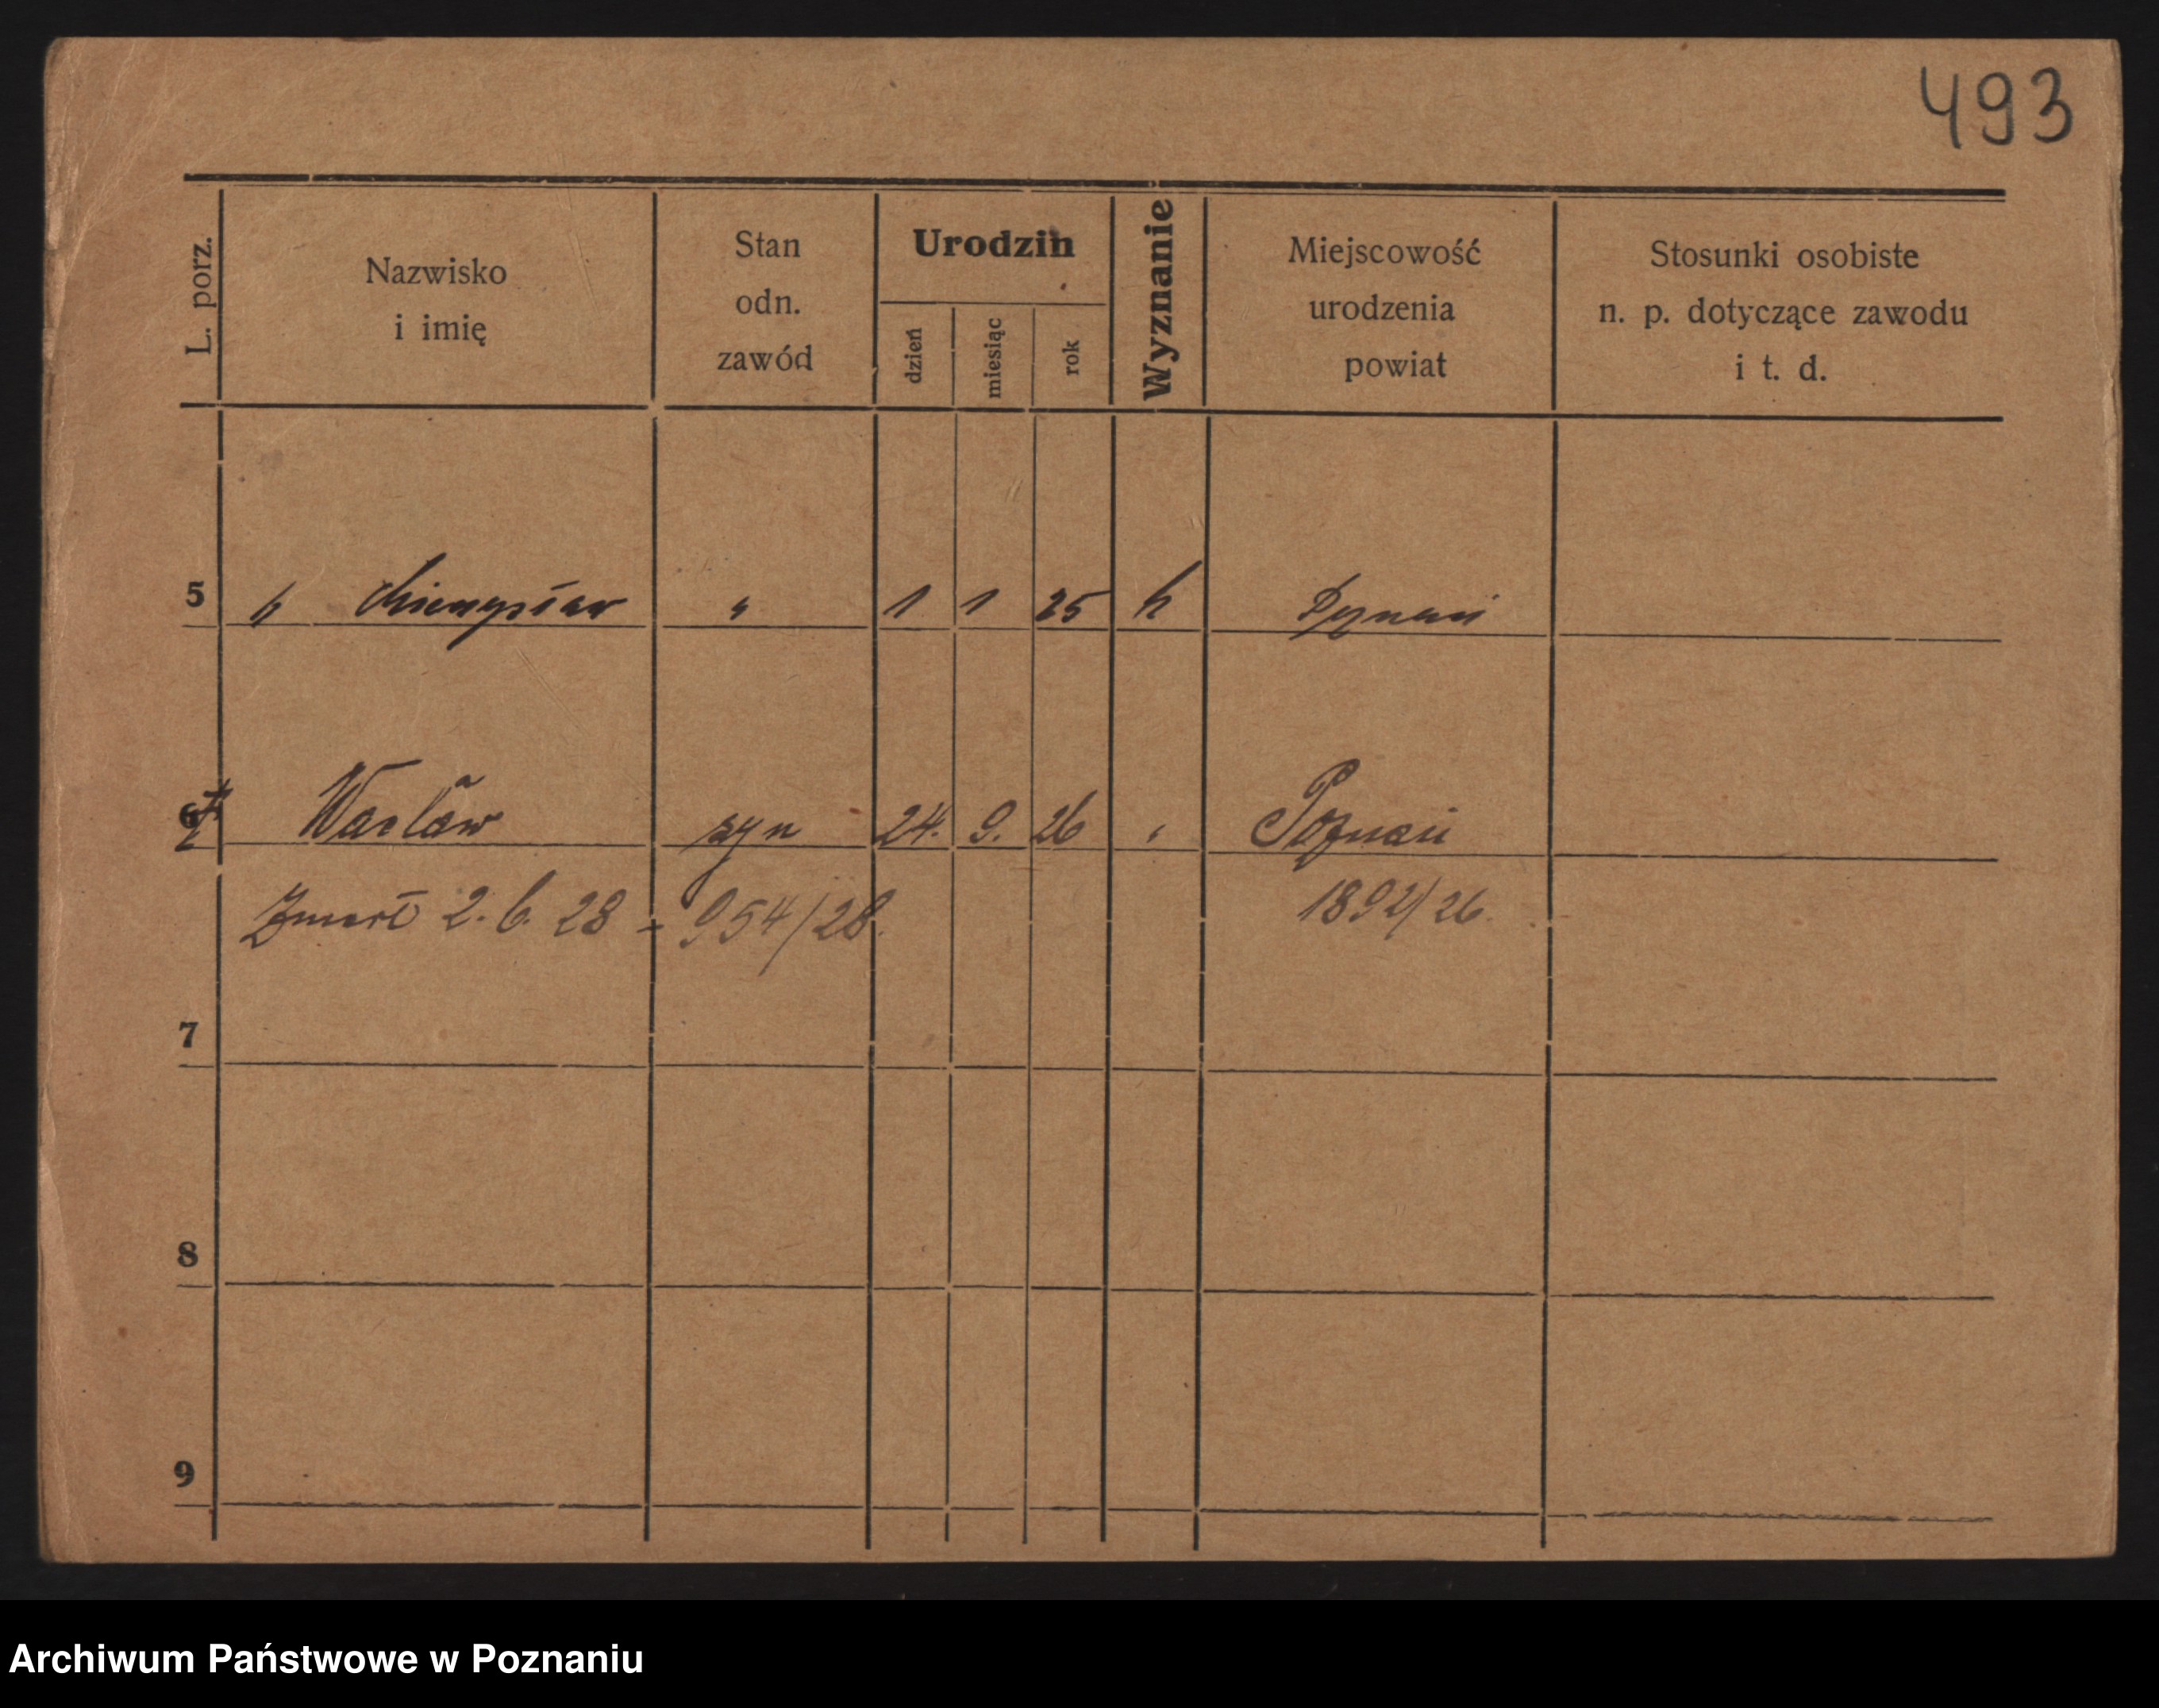 493
L. porz.
Nazwisko
i imię
Stan
odn.
zawód
Urodzin
dzień
miesiąc
rok
Wyznanie
Miejscowość
urodzenia
powiat
Stosunki osobiste
n. p. dotyczące zawodu
i t. d.
5 " Mieczysław " 1 1 25 k Poznań
6 Wacław syn 24. 9. 26 " Poznań
Zmarł 2. 6. 28 - 954/28. 1892/26.
7
8
9
Archiwum Państwowe w Poznaniu